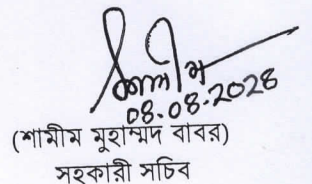 শামীম
08.08.2028
(শামীম মুহাম্মদ বাবর)
সহকারী সচিব